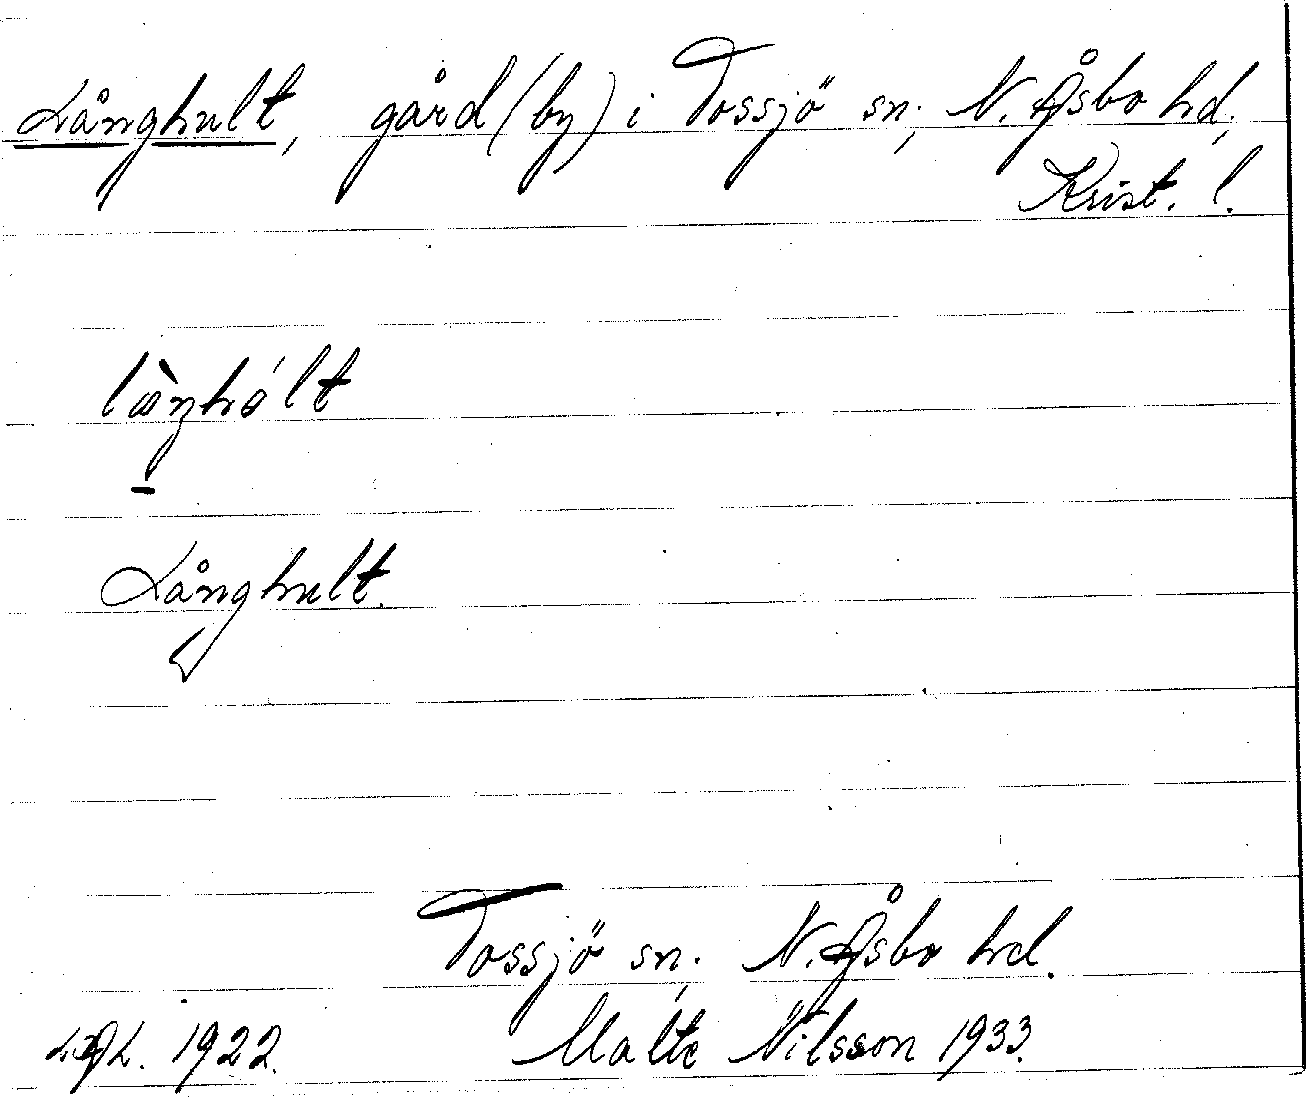 Långhult, gård (by) i Tossjö sn, N. Åsbo hd,
Krist. l.
Långhult.
Tossjö sn. N. Åsbo hd.
1922. Malte Nilsson 1933.